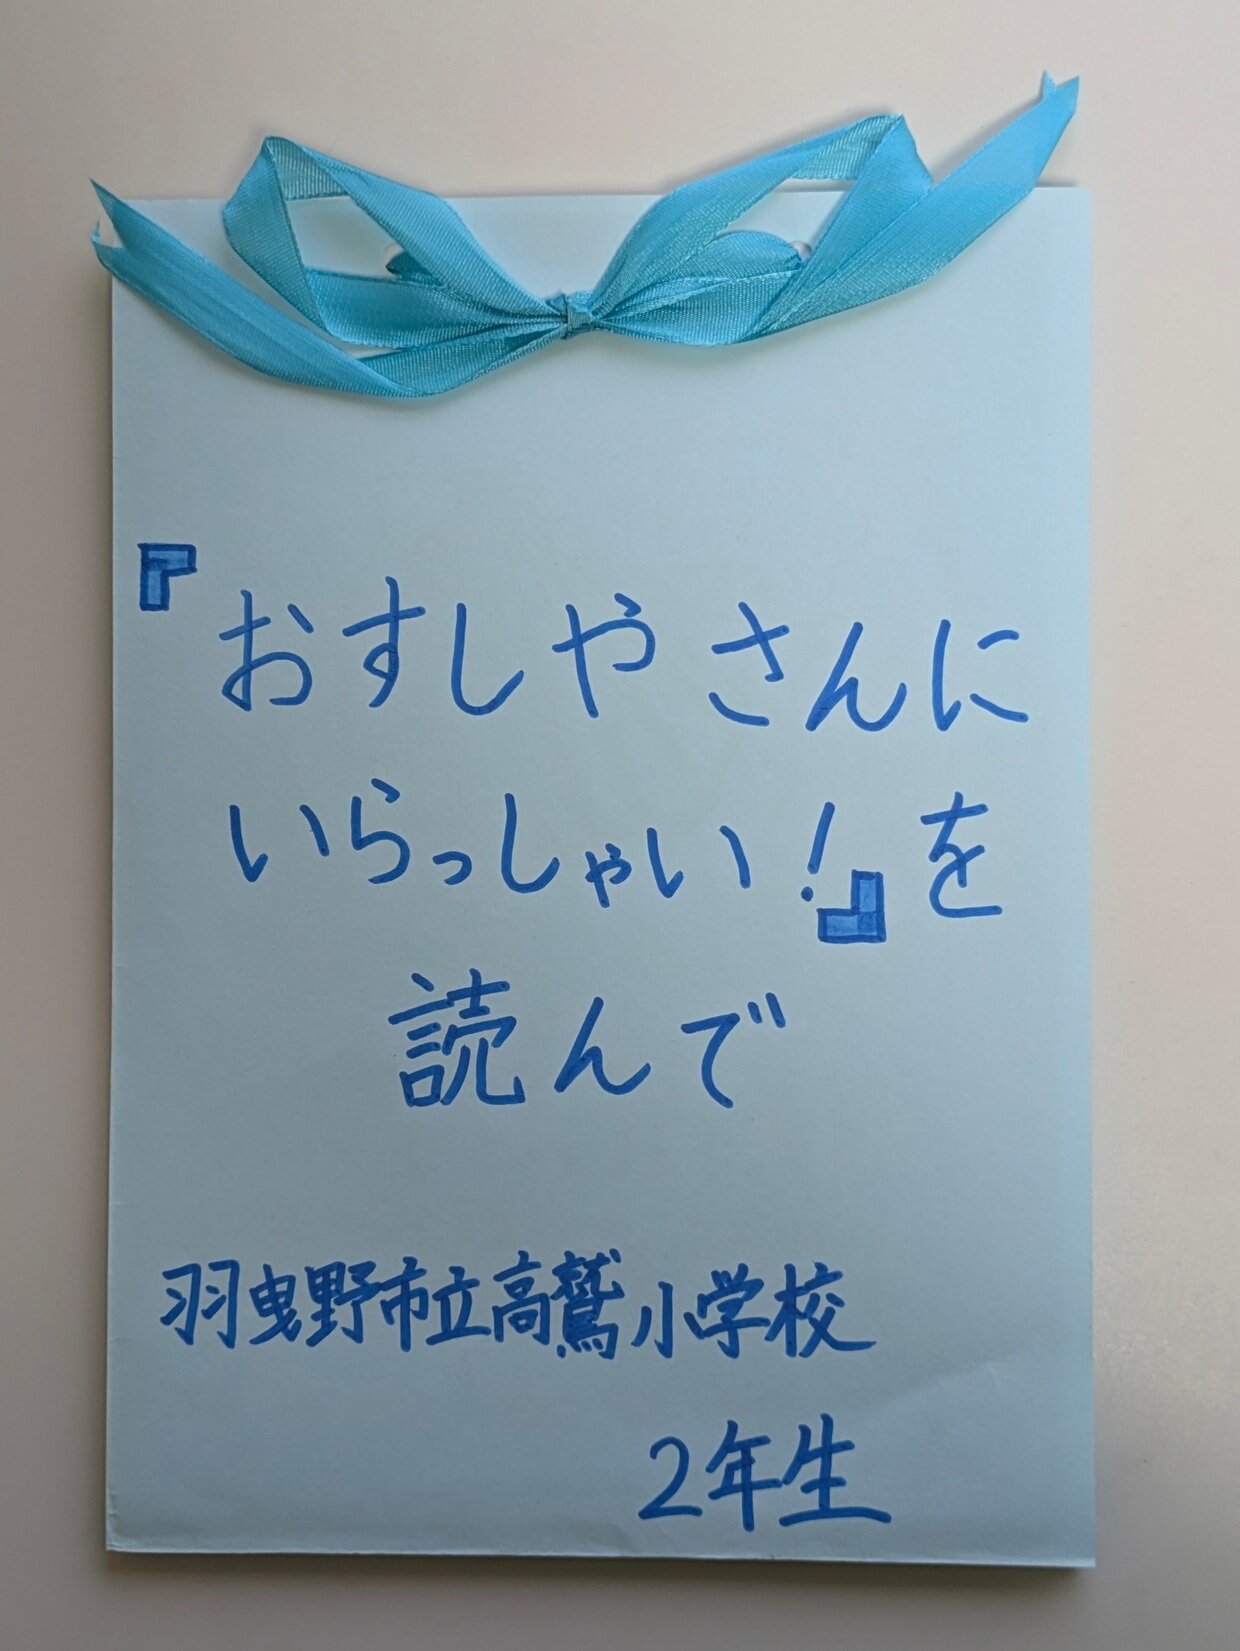 『おすしやさんに
いらっしゃい!』を
読んで
羽曳野市立高鷲小学校
2年生